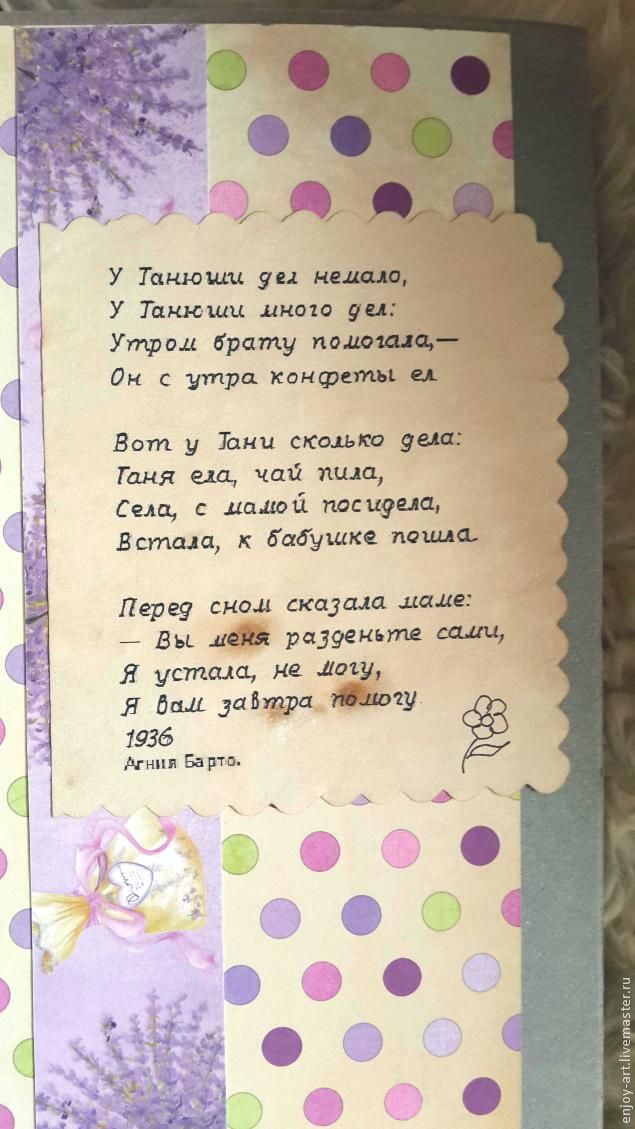 У Танюши дел немало,
У Танюши много дел:
Утром брату помогала,—
Он с утра конфеты ел
Вот у Тани сколько дела:
Таня ела, чай пила,
Села, с мамой посидела,
Встала, к бабушке пошла.
Перед сном сказала маме:
— Вы меня разденьте сами,
Я устала, не могу,
Я вам завтра помогу.
1936
Агния Барто.
enjoy-art.livemaster.ru